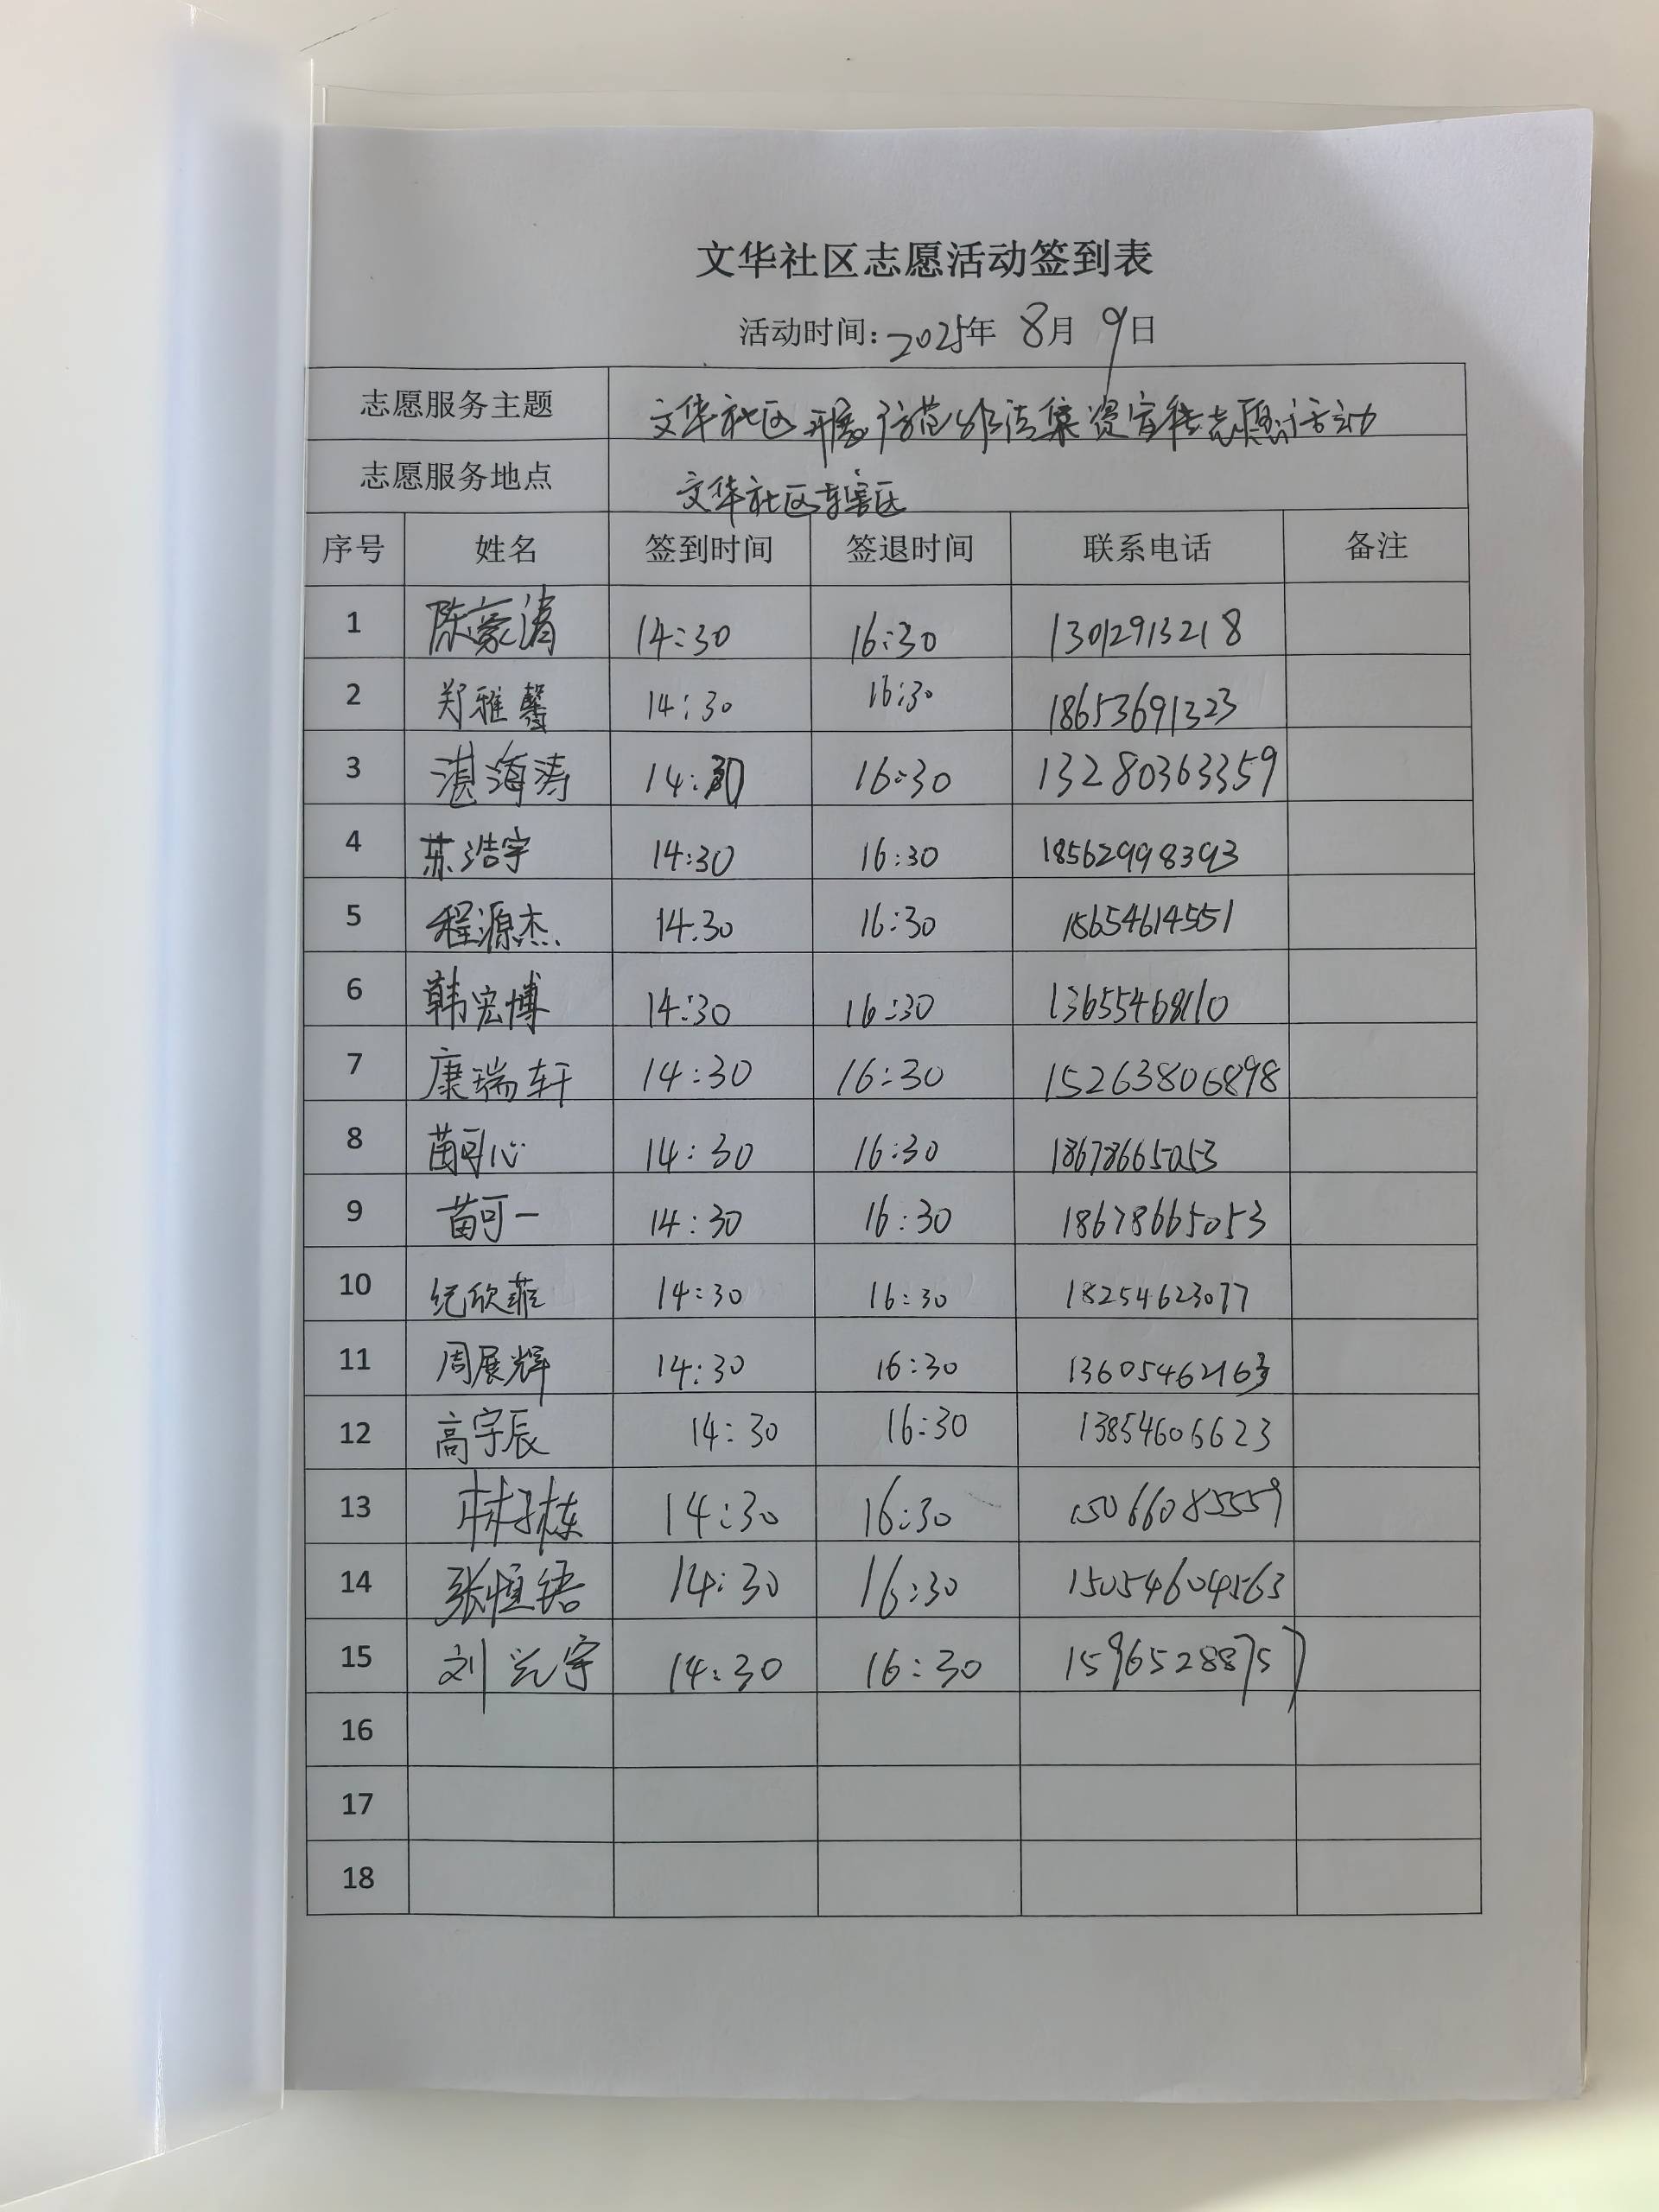 文华社区志愿活动签到表
活动时间：2025年 8月 9日
志愿服务主题 文华社区开展防范非法集资宣传志愿活动
志愿服务地点 文华社区辖区
序号 姓名 签到时间 签退时间 联系电话 备注
1 陈豪清 14:30 16:30 13012913218
2 郑雅馨 14:30 16:30 18653691323
3 湛海涛 14:30 16:30 13280363359
4 苏浩宇 14:30 16:30 18562998393
5 程源杰 14.30 16:30 15654614551
6 韩宏博 14:30 16:30 13655468110
7 康瑞轩 14:30 16:30 15263806898
8 苗可心 14:30 16:30 18678665053
9 苗可一 14:30 16:30 18678665053
10 纪欣菲 14:30 16:30 18254623077
11 周展辉 14:30 16:30 13605462163
12 高宇辰 14:30 16:30 13854606623
13 林子栋 14:30 16:30 15066085559
14 张恒语 14:30 16:30 15054604563
15 刘兴宇 14:30 16:30 15965288757
16
17
18